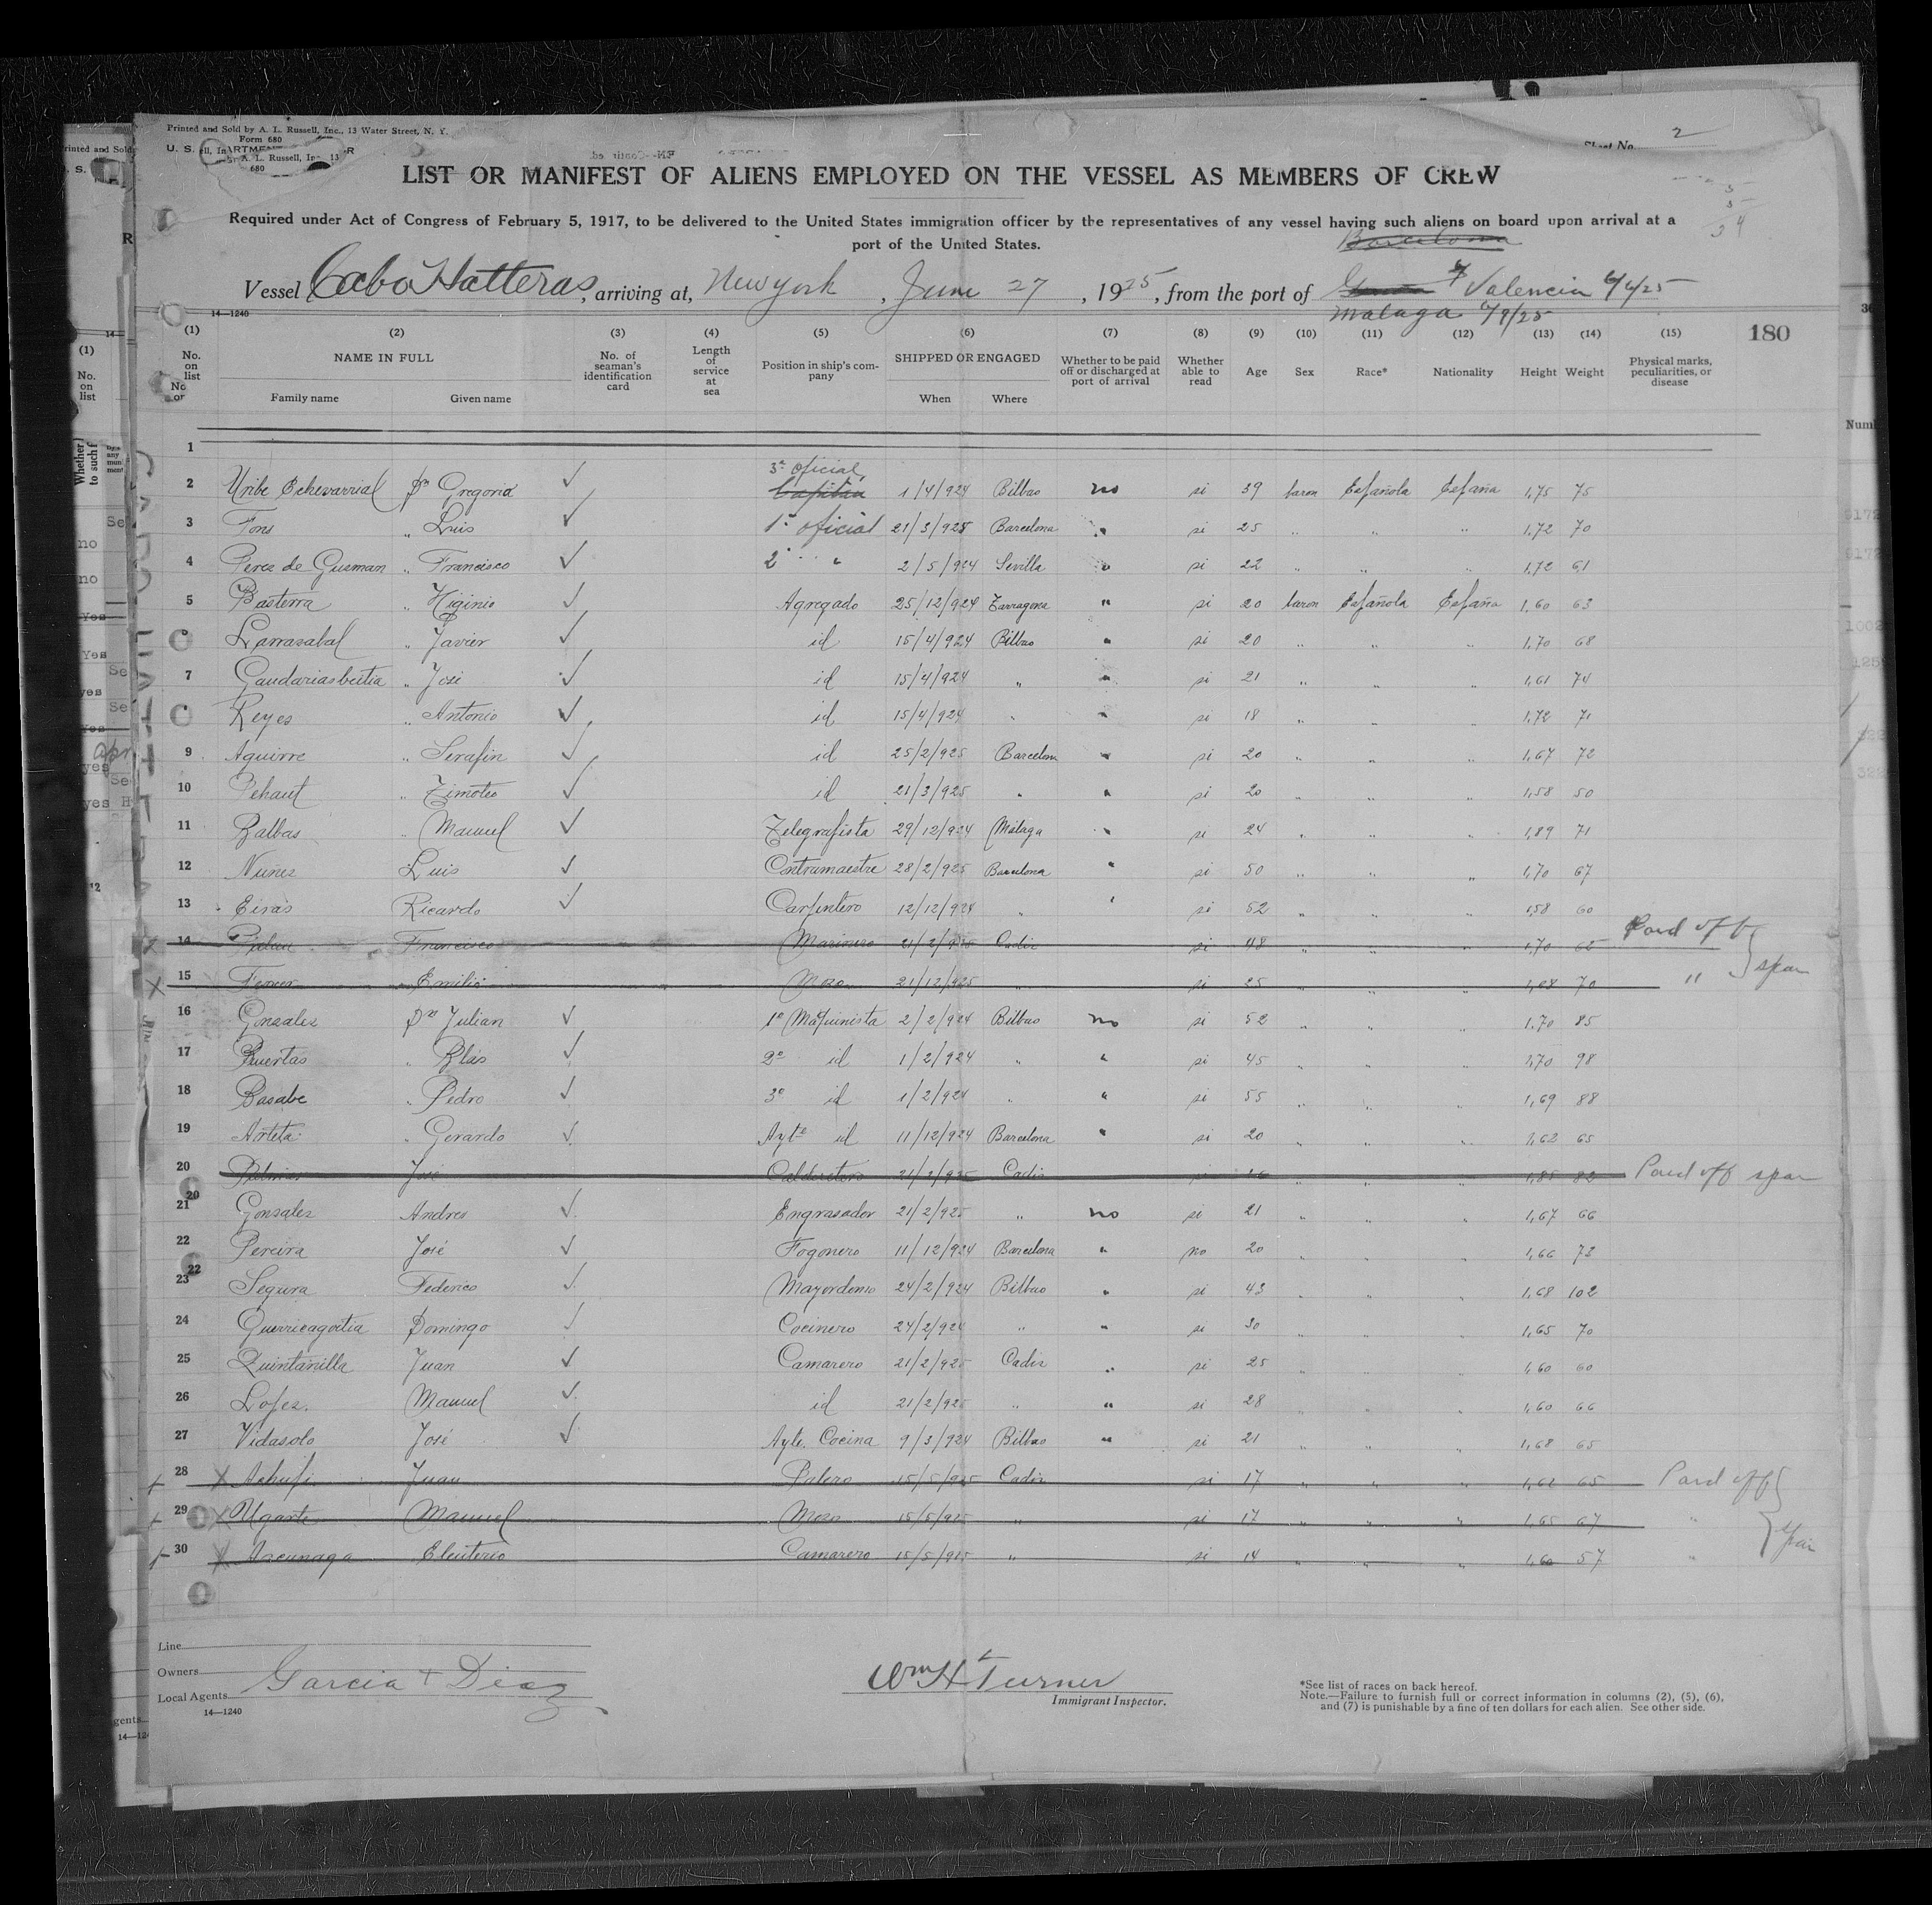 Printed and Sold by A. L. Russell, Inc., 13 Water Street, N. Y.
Form 680
Sheet No. 2
LIST OR MANIFEST OF ALIENS EMPLOYED ON THE VESSEL AS MEMBERS OF CREW
Required under Act of Congress of February 5, 1917, to be delivered to the United States immigration officer by the representatives of any vessel having such aliens on board upon arrival at a
port of the United States.
Barcelona
Vessel Cabo Hatteras, arriving at, New york, June 27, 1925, from the port of Valencia 6/4/25
Malaga 6/9/25
14—1240
180
(1) (2) (3) (4) (5) (6) (7) (8) (9) (10) (11) (12) (13) (14) (15)
No. on list NAME IN FULL Family name Given name No. of seaman's identification card Length of service at sea Position in ship's company SHIPPED OR ENGAGED When Where Whether to be paid off or discharged at port of arrival Whether able to read Age Sex Race* Nationality Height Weight Physical marks, peculiarities, or disease
1
3º oficial
2 Uribe Echevarria Dn Gregorio ✓ Capitan 1/4/924 Bilbao no si 39 baron Española España 1,75 75
3 Fons " Luis ✓ 1º oficial 21/3/925 Barcelona " si 25 " " " 1,72 70
4 Perez de Gusman " Francisco ✓ 2º " 2/5/924 Sevilla " si 22 " " " 1,72 61
5 Basterra " Higinio ✓ Agregado 25/12/924 Tarragona " si 20 baron Española España 1,60 63
Larrasabal " Javier ✓ id 15/4/924 Bilbao " si 20 " " " 1,70 68
7 Gaudariasbeitia " José ✓ id 15/4/924 " " si 21 " " " 1,61 74
Reyes " Antonio ✓ id 15/4/924 " " si 18 " " " 1,72 71
9 Aguirre " Serafin ✓ id 25/2/925 Barcelona " si 20 " " " 1,67 72
10 Pehaut " Timoteo ✓ id 21/3/925 " " si 20 " " " 1,58 50
11 Balbas " Manuel ✓ Telegrafista 29/12/924 Málaga " si 24 " " " 1,89 71
12 Nuñez Luis ✓ Contramaestre 28/2/925 Barcelona " si 50 " " " 1,70 67
13 Eiras Ricardo ✓ Carpintero 12/12/924 " " si 52 " " " 1,58 60
14 Francisco Marinero 21/2/925 Cadiz si 48 " " " 1,70 65 Paid off
15 Ferrer Emilio Mozo 21/12/925 " si 25 " " " 70 " Spain
16 Gonzalez Dn Julian ✓ 1º Maquinista 2/2/924 Bilbao no si 52 " " " 1,70 85
17 Puertas " Blas ✓ 2º id 1/2/924 " " si 45 " " " 1,70 98
18 Basabe " Pedro ✓ 3º id 1/2/924 " " si 55 " " " 1,69 88
19 Arteta " Gerardo ✓ Ayte id 11/12/924 Barcelona " si 20 " " " 1,62 65
20 José Calderetero 21/2/925 Cadiz si " " " 1,85 82 Paid off Spain
20
21 Gonzalez Andres ✓ Engrasador 21/2/925 " no si 21 " " " 1,67 66
22 Pereira José ✓ Fogonero 11/12/924 Barcelona " no 20 " " " 1,66 72
22
23 Segura Federico ✓ Mayordomo 24/2/924 Bilbao " si 43 " " " 1,68 102
24 Querricagoitia Domingo ✓ Cocinero 24/2/924 " " si 30 " " " 1,65 70
25 Quintanilla Juan ✓ Camarero 21/2/925 Cadiz " si 25 " " " 1,60 60
26 Lopez Manuel ✓ id 21/2/925 " " si 28 " " " 1,60 66
27 Vidasolo José ✓ Ayte. Cocina 9/3/924 Bilbao " si 21 " " " 1,68 65
28 Juan Palero 15/5/925 Cadiz si 17 " " " 1,62 65 Paid off
29 Ugarte Manuel Mozo 15/5/925 " si 17 " " " 1,65 67 "
30 Azcunaga Eleuterio Camarero 15/5/925 " si 14 " " " 1,60 57 " Spain
Line
Owners
Local Agents Garcia & Diaz
14—1240
Wm H Turner
Immigrant Inspector.
*See list of races on back hereof.
Note.—Failure to furnish full or correct information in columns (2), (5), (6),
and (7) is punishable by a fine of ten dollars for each alien. See other side.